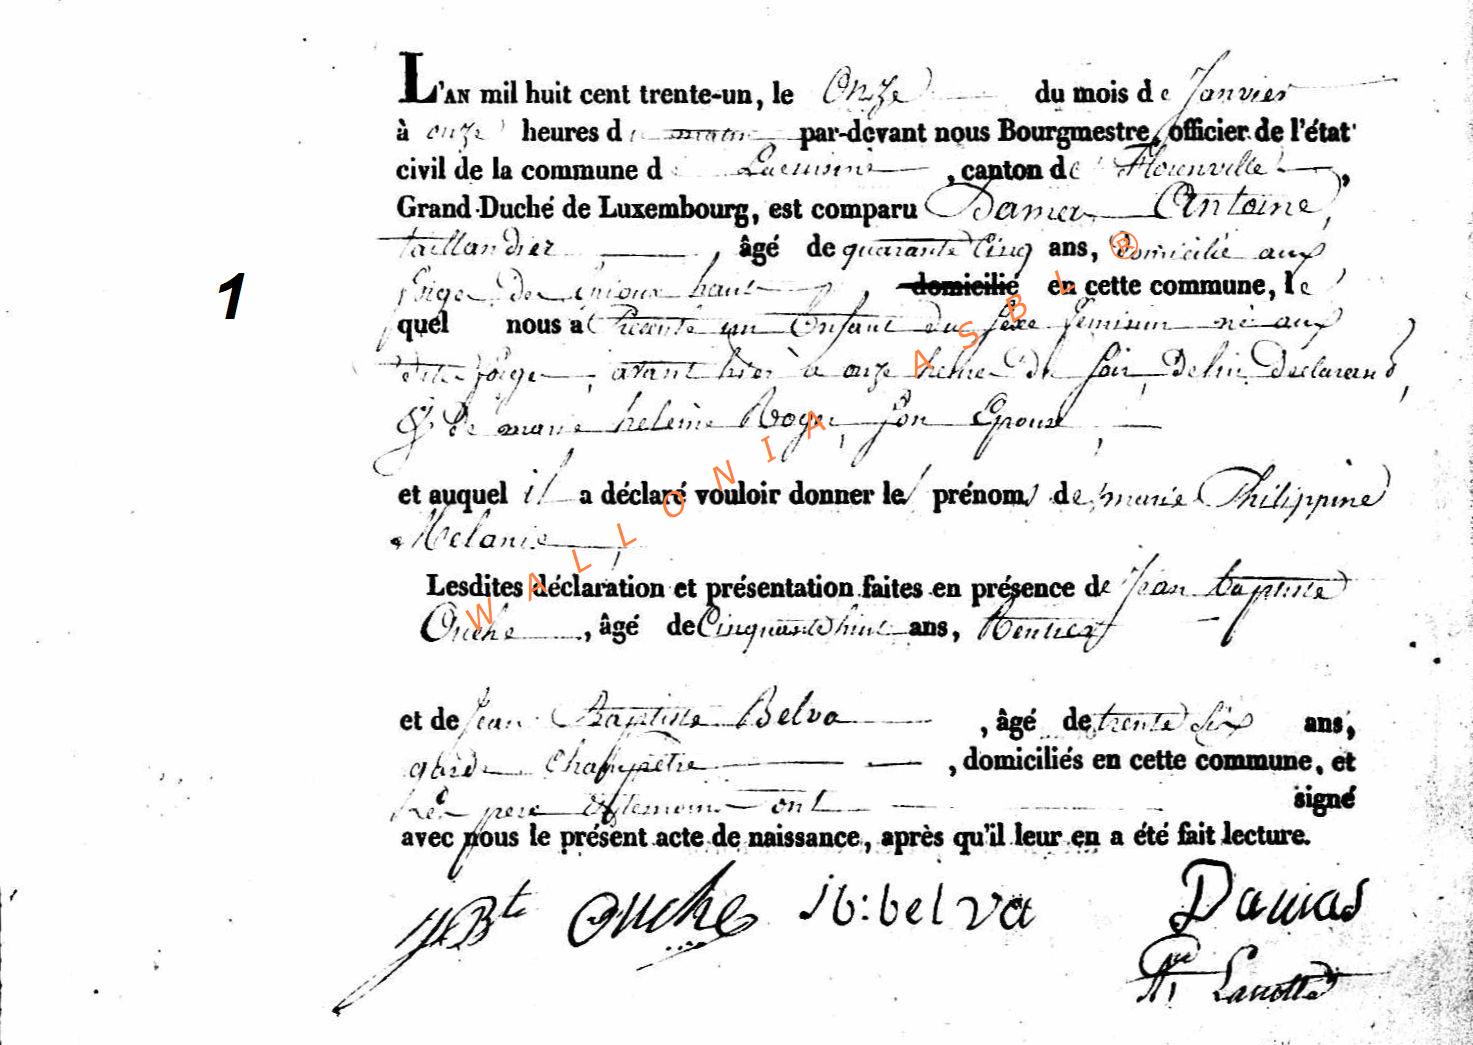 1
L'AN mil huit cent trente-un, le Onze du mois de Janvier
à onze heures du matin par-devant nous Bourgmestre, officier de l'état
civil de la commune de Lacuisine, canton de Florenville,
Grand-Duché de Luxembourg, est comparu Damas Antoine,
taillandier, âgé de quarante Cinq ans, domicilié aux
forges haut, domicilié en cette commune, le
quel nous a Présenté un Enfant du Sexe féminin né aux
dites forges, avant hier à onze heures du Soir, De lui Déclarant,
& De marie heleine Roger, Son Epouse,
et auquel il a déclaré vouloir donner les prénoms de marie Philippine
Melanie,
Lesdites déclaration et présentation faites en présence de Jean baptiste
Ouche, âgé de Cinquante huit ans, Rentier
et de Jean Baptiste Belva, âgé de trente Six ans,
garde Champetre, domiciliés en cette commune, et
Les pere & temoins ont signé
avec nous le présent acte de naissance, après qu'il leur en a été fait lecture.
JBte Ouche Jb: belva Damas
Lanotte
WALLONIA ASBL ®